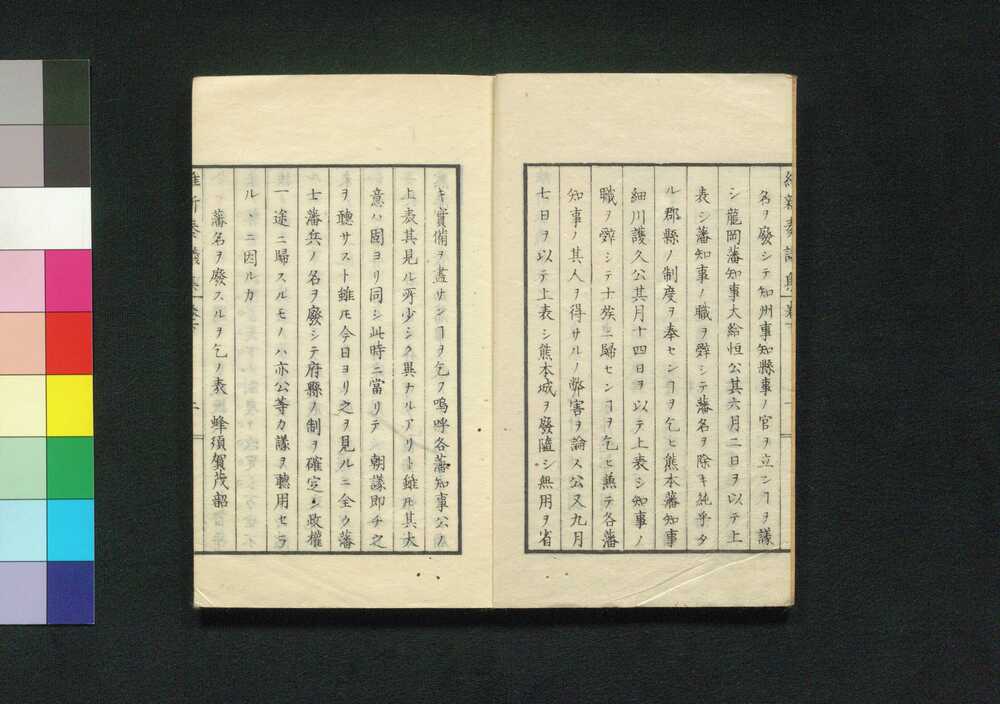 名ヲ廢シテ知州事知縣事ノ官ヲ立シヿヲ議
シ龍岡藩知事大給恒公其六月二日ヲ以テ上
表シ藩知事ノ職ヲ辭シテ藩名ヲ除キ純乎タ
ル郡縣ノ制度ヲ奉センヿヲ乞ヒ熊本藩知事
細川護久公其月十四日ヲ以テ上表シ知事ノ
職ヲ辭シテ十族ニ歸センヿヲ乞ヒ無テ各藩
知事ノ其人ヲ得サルノ弊害ヲ論ス公又九月
七日ヲ以テ上表シ熊本城ヲ廢隳シ無用ヲ省
キ實備ヲ盡サンヿヲ乞フ嗚呼各藩知事公ノ
上表其見ル所少シク異ナルアリト雖𪜈其大
意ハ固ヨリ同シ此時ニ當リテ 朝議即チ之
ヲ聽サスト雖𪜈今日ヨリ之ヲ見ルニ全ク藩
士藩兵ノ名ヲ廢シテ府縣ノ制ヲ確定シ政權
一途ニ歸スルモノハ亦公等カ議ヲ聽用セラ
ルヽニ因ルカ
藩名ヲ廢スルヲ乞ノ表 蜂須賀茂韶